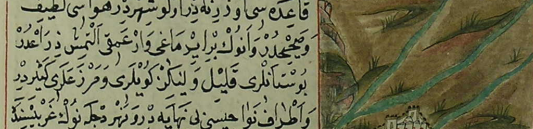 قاعده سی و ذرنه در اولو شهر در هواسی لطیف
و صحیحدر و انوك برابر ماغی وار عمقی التمش ذراعدر
بوستانلری قلیل و لیکن کویلری و مزرعه لری کثیردر
و اطراف نواحیسی بی نهایه در و نهر دجله نوك غربیسنده